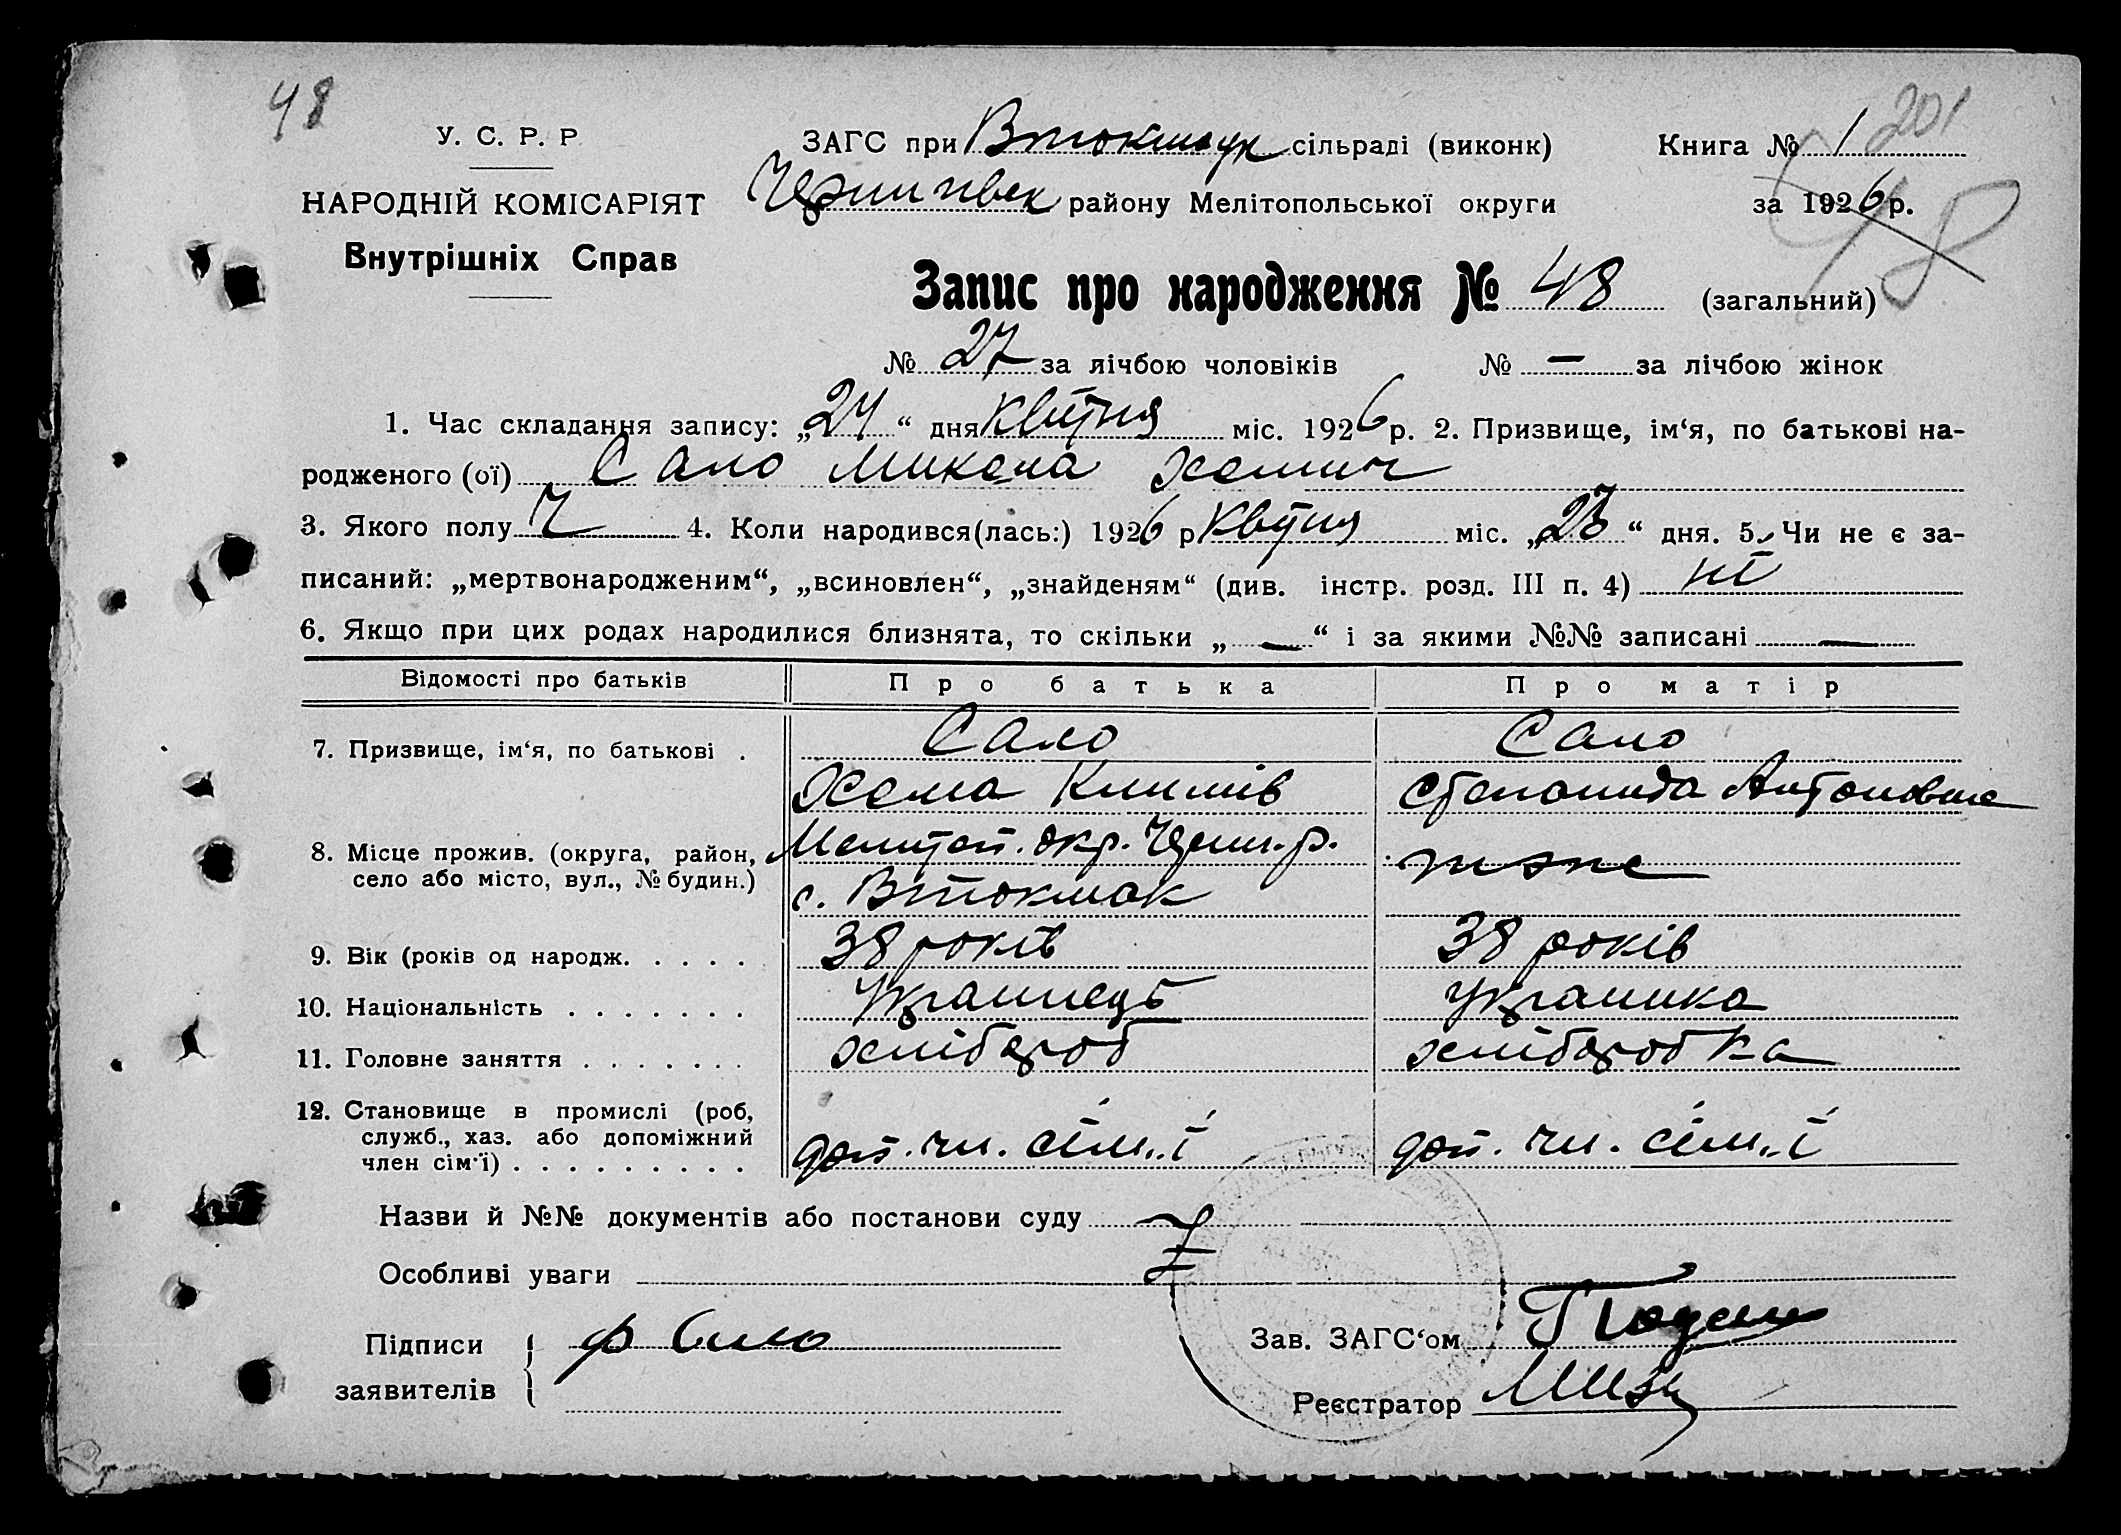 48
201
У. С. Р. Р
ЗАГС при Втокмацк сільраді (виконк) Книга № 1
НАРОДНІЙ КОМІСАРІЯТ
Чернигівськ району Мелітопольської округи за 1926 р.
48
Внутрішніх Справ
Запис про народження № 48 (загальний)
№ 27 за лічбою чоловіків № — за лічбою жінок
1. Час складання запису: „24“ дня Квітня міс. 1926 р. 2. Призвище, ім‘я, по батькові на-
родженого (ої) Сало Микола Хомич
3. Якого полу Ч 4. Коли народився(лась:) 1926 р Квітня міс. „23“ дня. 5. Чи не є за-
писаний: „мертвонародженим“, „всиновлен“, „знайденям“ (див. інстр. розд. III п. 4) ні
6. Якщо при цих родах народилися близнята, то скільки „—“ і за якими №№ записані —
Відомості про батьків Про батька Про матір
7. Призвище, ім‘я, по батькові . Сало Сало
Хома Климів Степанида Антоновна
8. Місце прожив. (округа, район, Меліτоп. окр. Черн. р. тоже
село або місто, вул., № будин.) с. Втокмак
9. Вік (років од народж. . . . . 38 років 38 років
10. Національність . . . . . . . Украинець Украинка
11. Головне заняття . . . . . . . хлібороб хліборобка
12. Становище в промислі (роб,
служб., хаз. або допоміжний
член сім‘ї) . . . . . . . . . доп. чл. сім.ї доп. чл. сім.ї
Назви й №№ документів або постанови суду
Особливі уваги
Підписи Ф Сало Зав. ЗАГС‘ом
заявителів Реєстратор